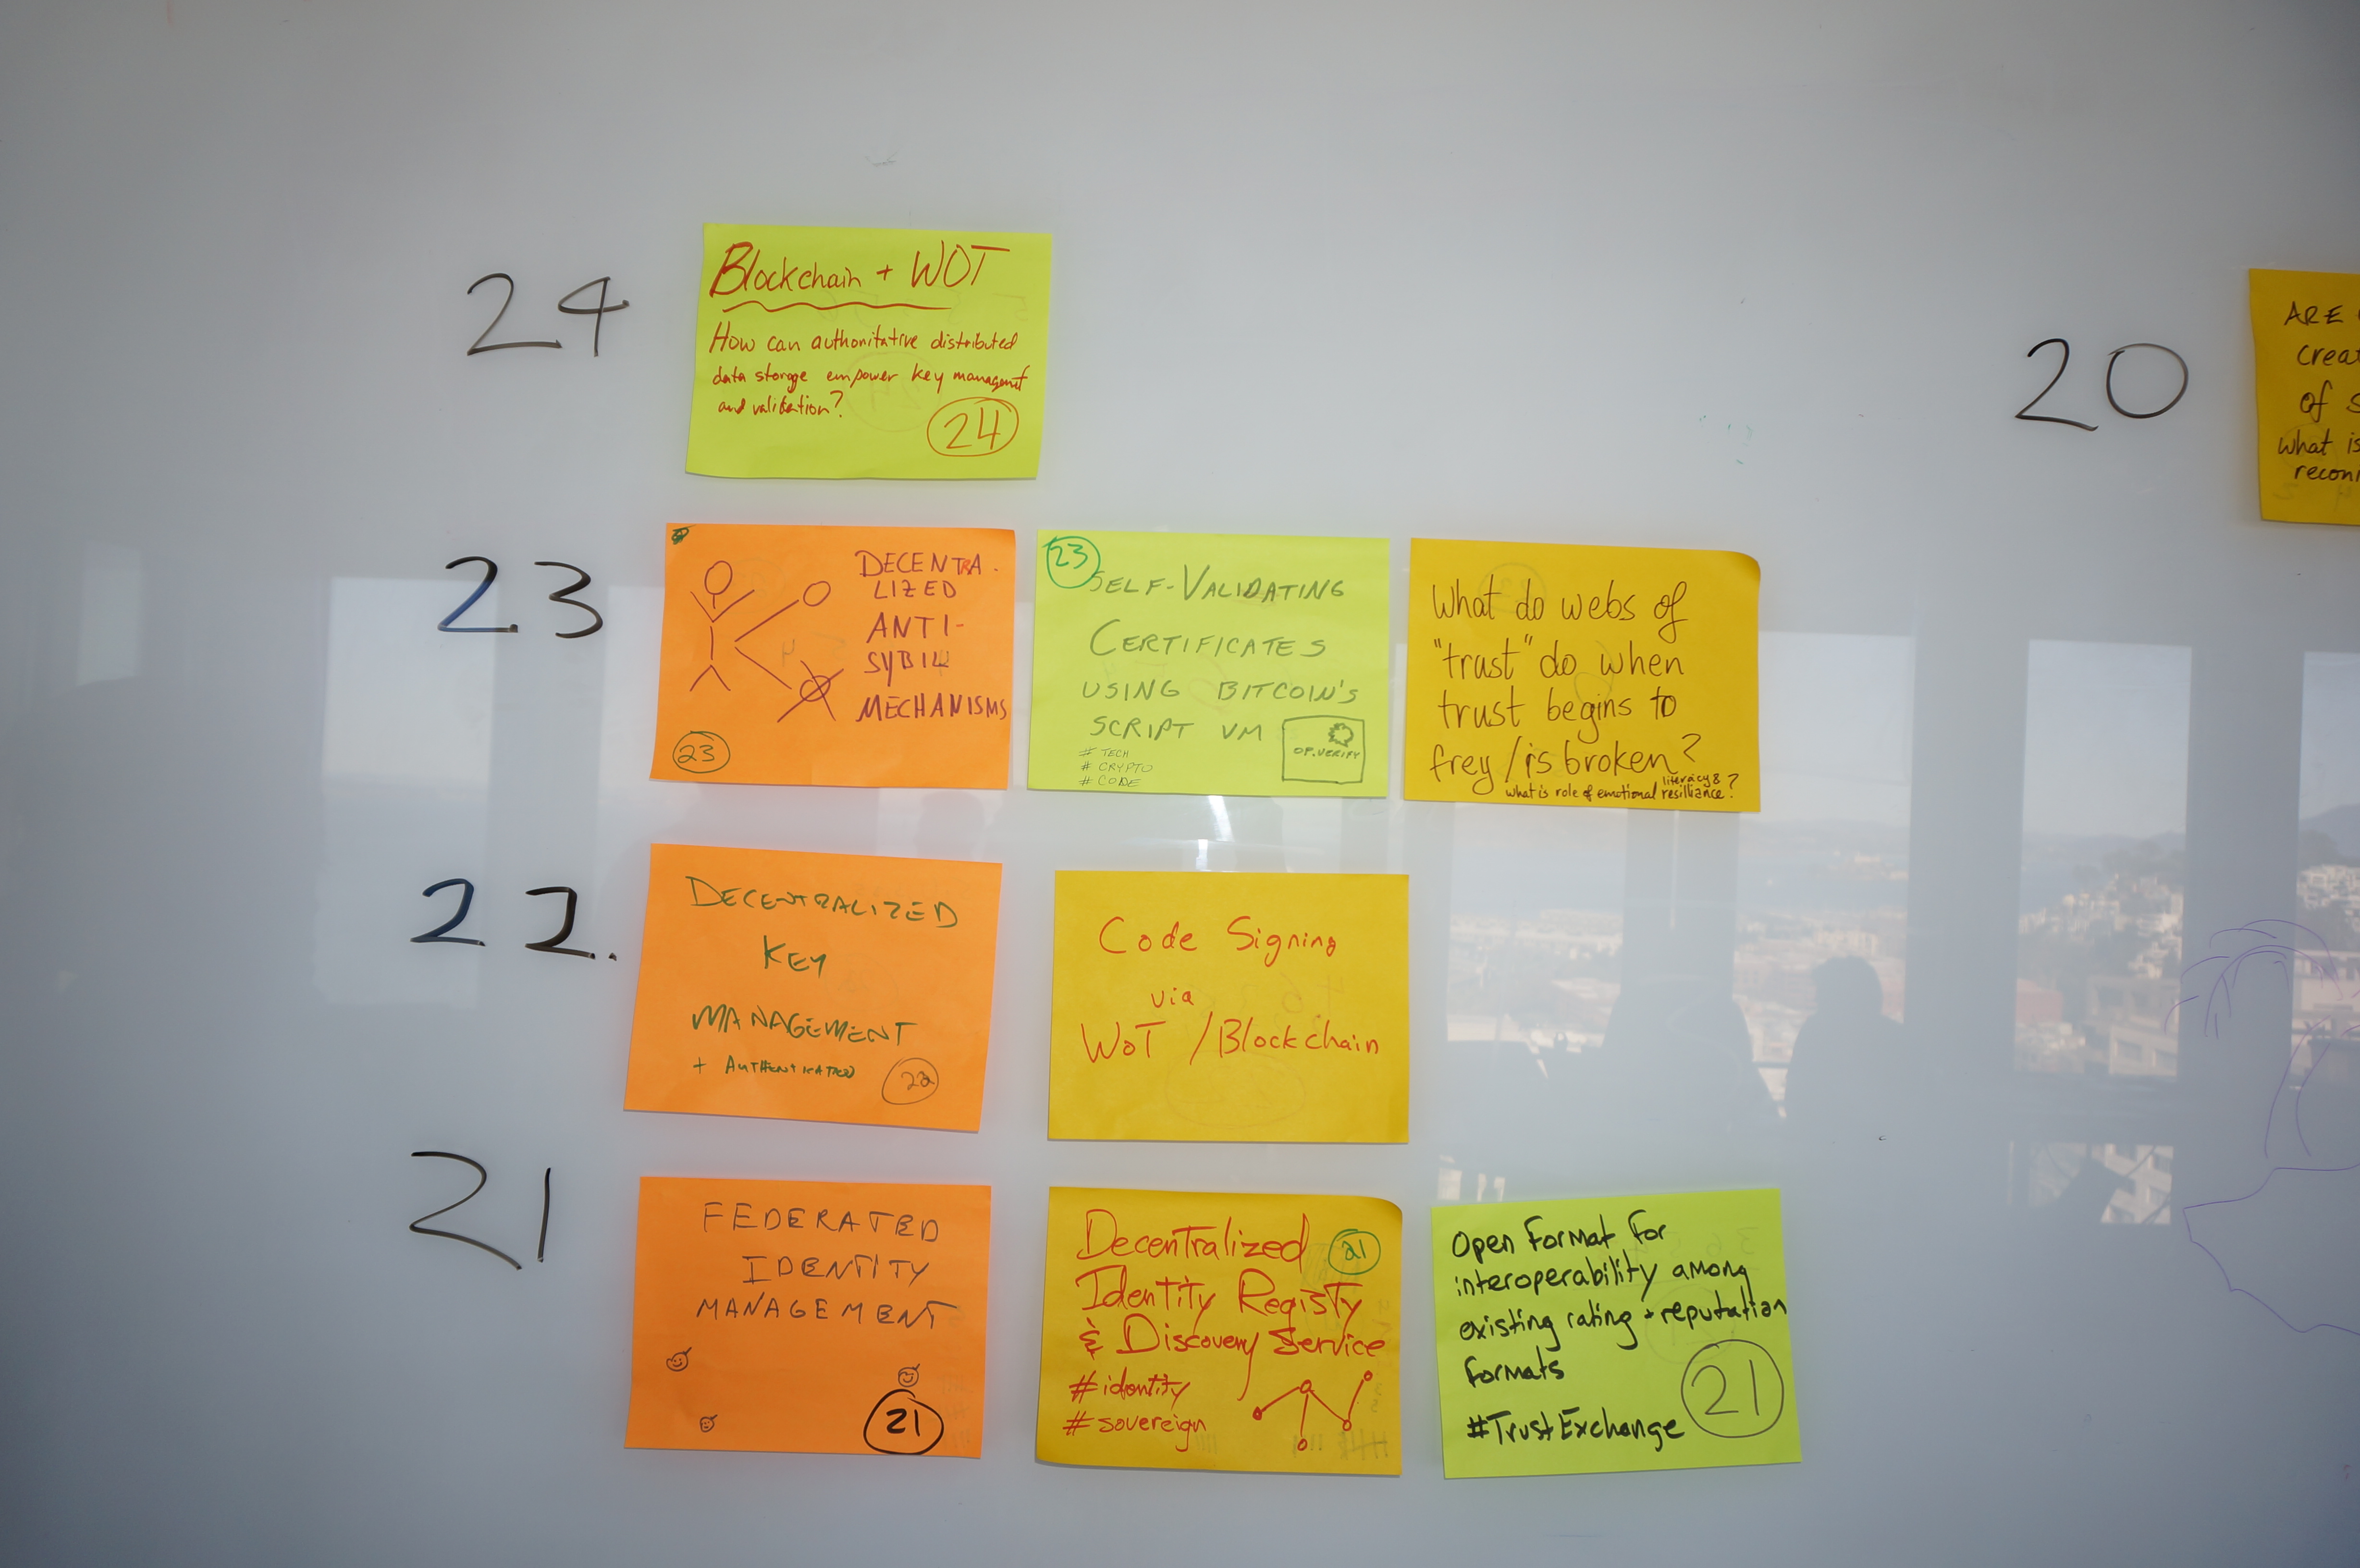 24
Blockchain + WOT
How can authoritative distributed
data storage empower key managemt
and validation?
24
23
DECENTRA-
LIZED
ANTI-
SYBIL
MECHANISMS
23
23
SELF-VALIDATING
CERTIFICATES
USING BITCOIN'S
SCRIPT VM
# TECH
# CRYPTO
# CODE
OP.VERIFY
What do webs of
"trust" do when
trust begins to
frey/is broken?
literacy &
what is role of emotional resilliance?
22.
DECENTRALIZED
KEY
MANAGEMENT
+ AUTHENTICATED
22
Code Signing
via
WoT / Blockchain
21
FEDERATED
IDENTITY
MANAGEMENT
21
Decentralized
21
Identity Registy
& Discovery Service
# identity
# sovereign
Open Format for
interoperability among
existing rating + reputation
formats
#TrustExchange
21
20
ARE
of
what is